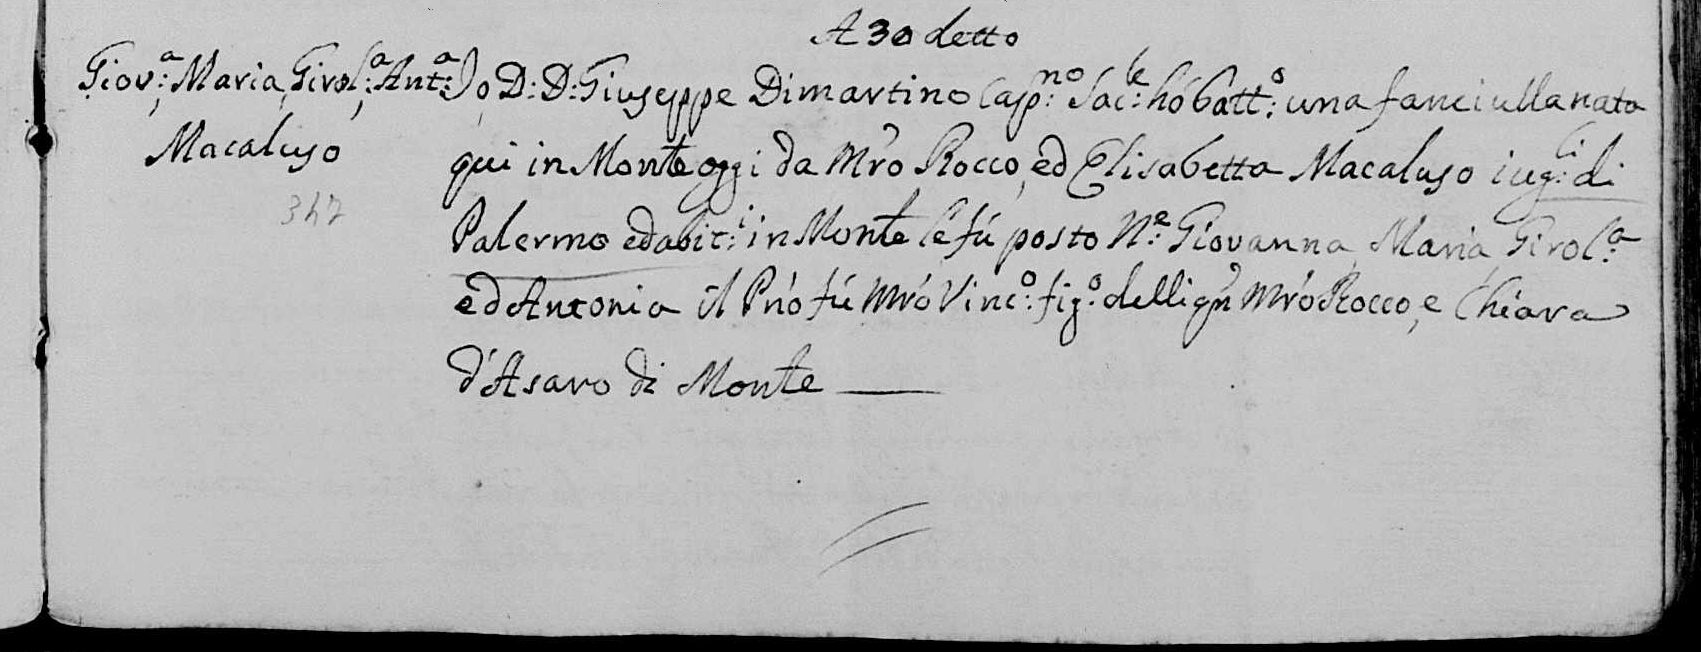 A 30 detto
Giov:ª, Maria, Girol:ª, Ant:ª
Macaluso
347
Io D: D: Giuseppe Dimartino Cap:no Sac:le hò batt:o una fanciulla nata
qui in Monte oggi da Mrõ Rocco, ed Elisabetta Macaluso iug:li di
Palermo ed abit:i in Monte le fú posto N:e Giovanna, Maria, Girol:ª
ed Antonia il Pño fú Mrõ Vinc:o fig:o delli qm̃ Mrõ Rocco, e Chiara
d'Asaro di Monte ——